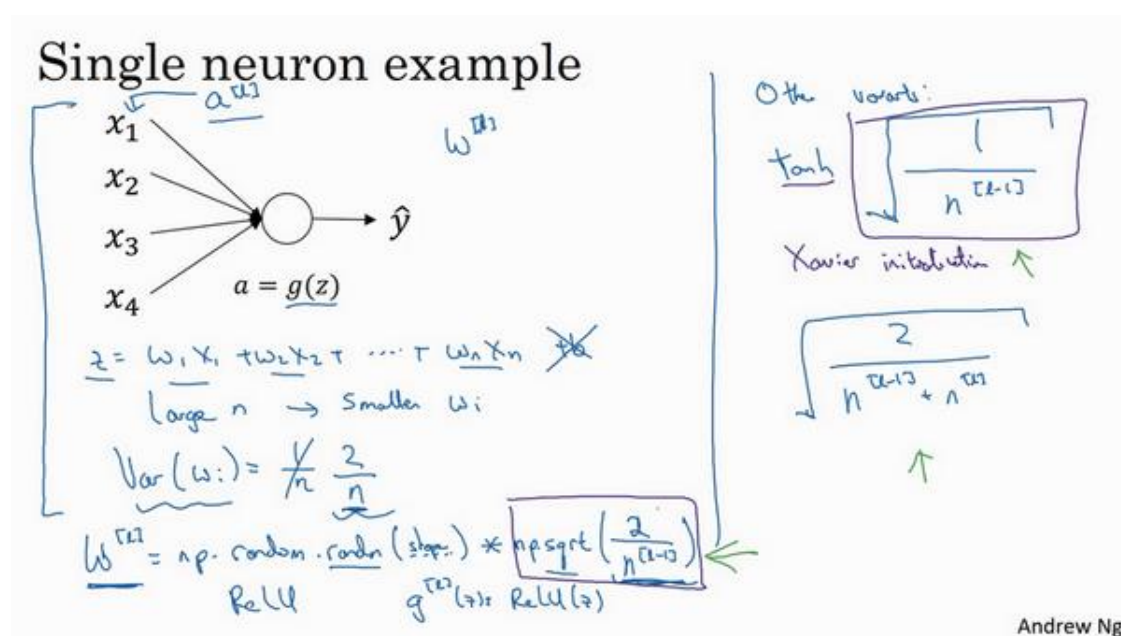 Single neuron example
a^[l]
x₁
x₂
x₃
x₄
ŷ
a = g(z)
W^[l]
z = w₁x₁ + w₂x₂ + ... + wₙxₙ +b
Large n → Smaller wᵢ
Var(wᵢ) = 1/n 2/n
W^[l] = np.random.randn(shape) * np.sqrt(2/n^[l-1])
ReLU g^[l](z) = ReLU(z)
Other variants:
tanh √(1/n^[l-1])
Xavier initialization
√(2/(n^[l-1] + n^[l]))
Andrew Ng